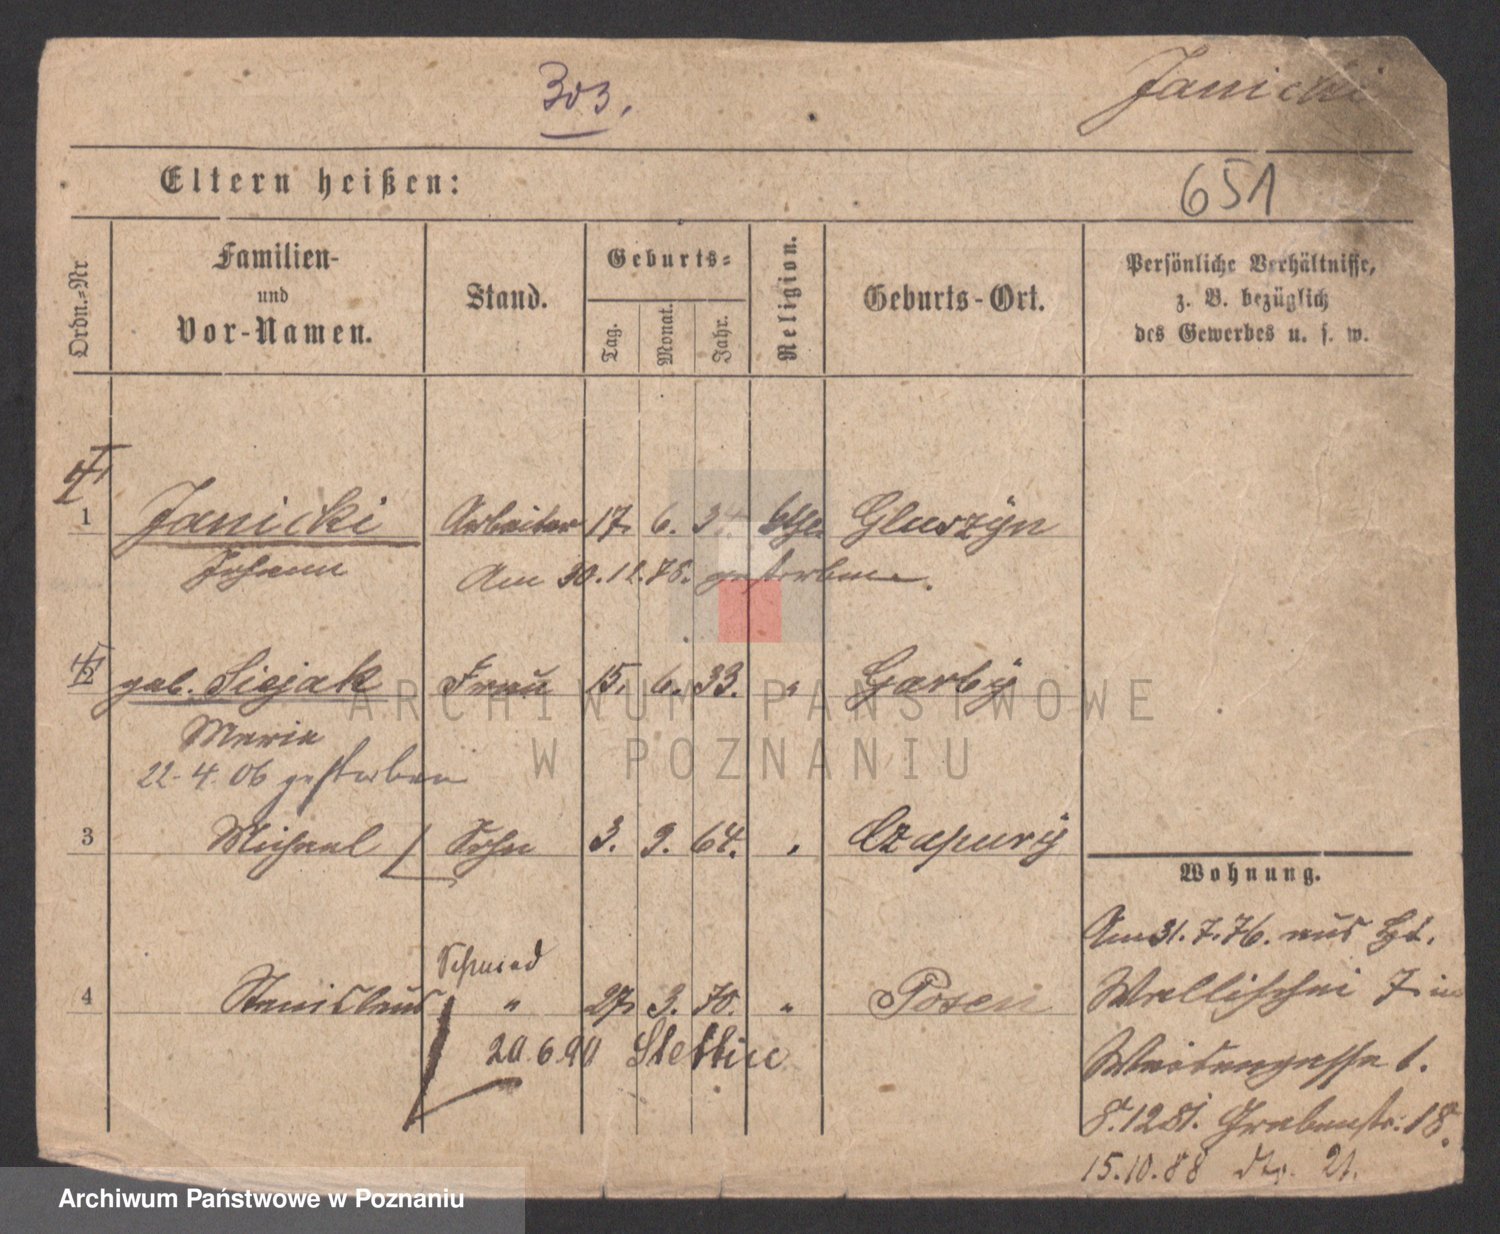 303.
Janicki
Eltern heißen:
651
Ordn.-Nr
Familien-
und
Vor-Namen.
Stand.
Geburts-
Tag.
Monat.
Jahr.
Religion.
Geburts-Ort.
Persönliche Verhältnisse,
z. B. bezüglich
des Gewerbes u. s. w.
1 Janicki Arbeiter 17. 6. 34. kth. Gluszyn
Johann Am 30.12.78. gestorben.
2 geb. Siejak Frau 15. 6. 33. " Garby
Marie
22-4.06 gestorben
3 Michael Sohn 3. 9. 64. " Czapury
Wohnung.
Am 31.7.76. aus
Schmied
4 Stanislaus " 27. 3. 70. " Posen
Wallischei 7 in
20.6.90 Stettin
Weidengasse 1.
8.12 81. Grabenstr. 18.
15.10.88 dto. 21.
ARCHIWUM PAŃSTWOWE
W POZNANIU
Archiwum Państwowe w Poznaniu